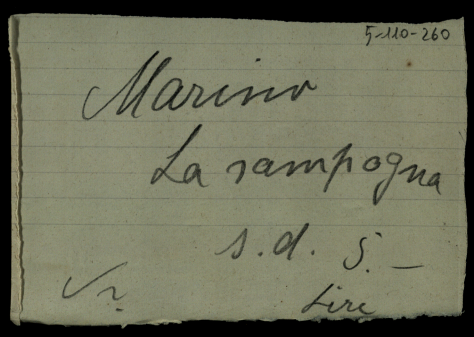 5-110-260
Marino
La sampogna
s.d. 5.—
Lire